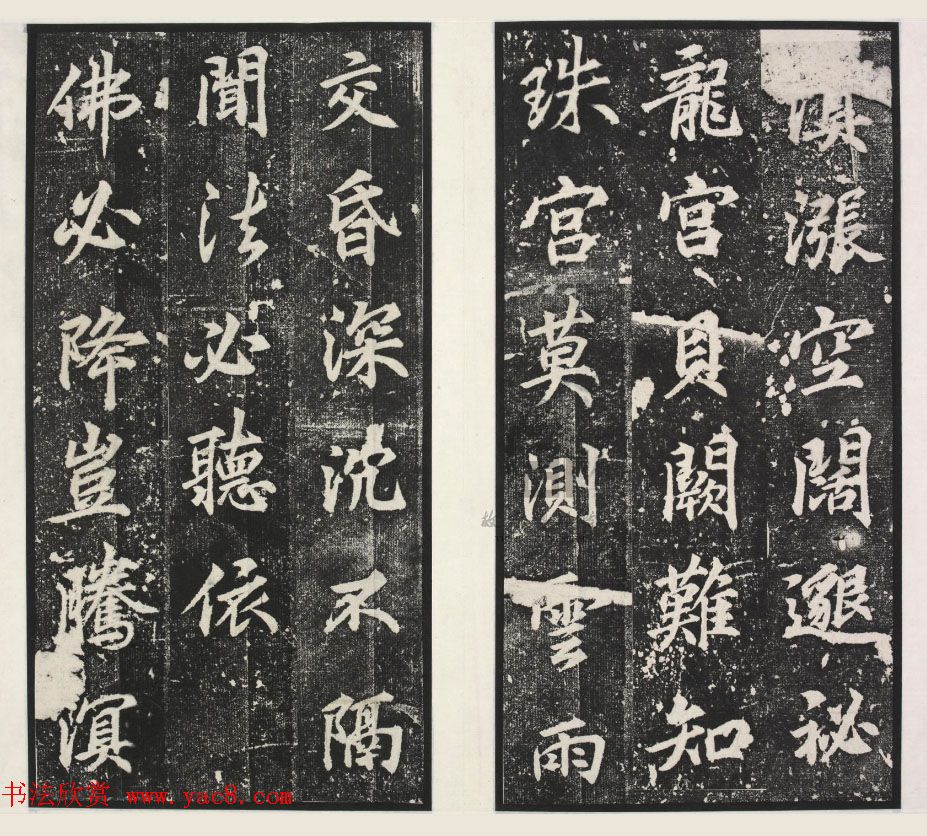 溟漲空闊邈秘
龍宮貝闕難知
珠宮莫測雲雨
交昏深沈不隔
聞法必聽依
佛必降豈騰溟
书法欣赏 www.yac8.com